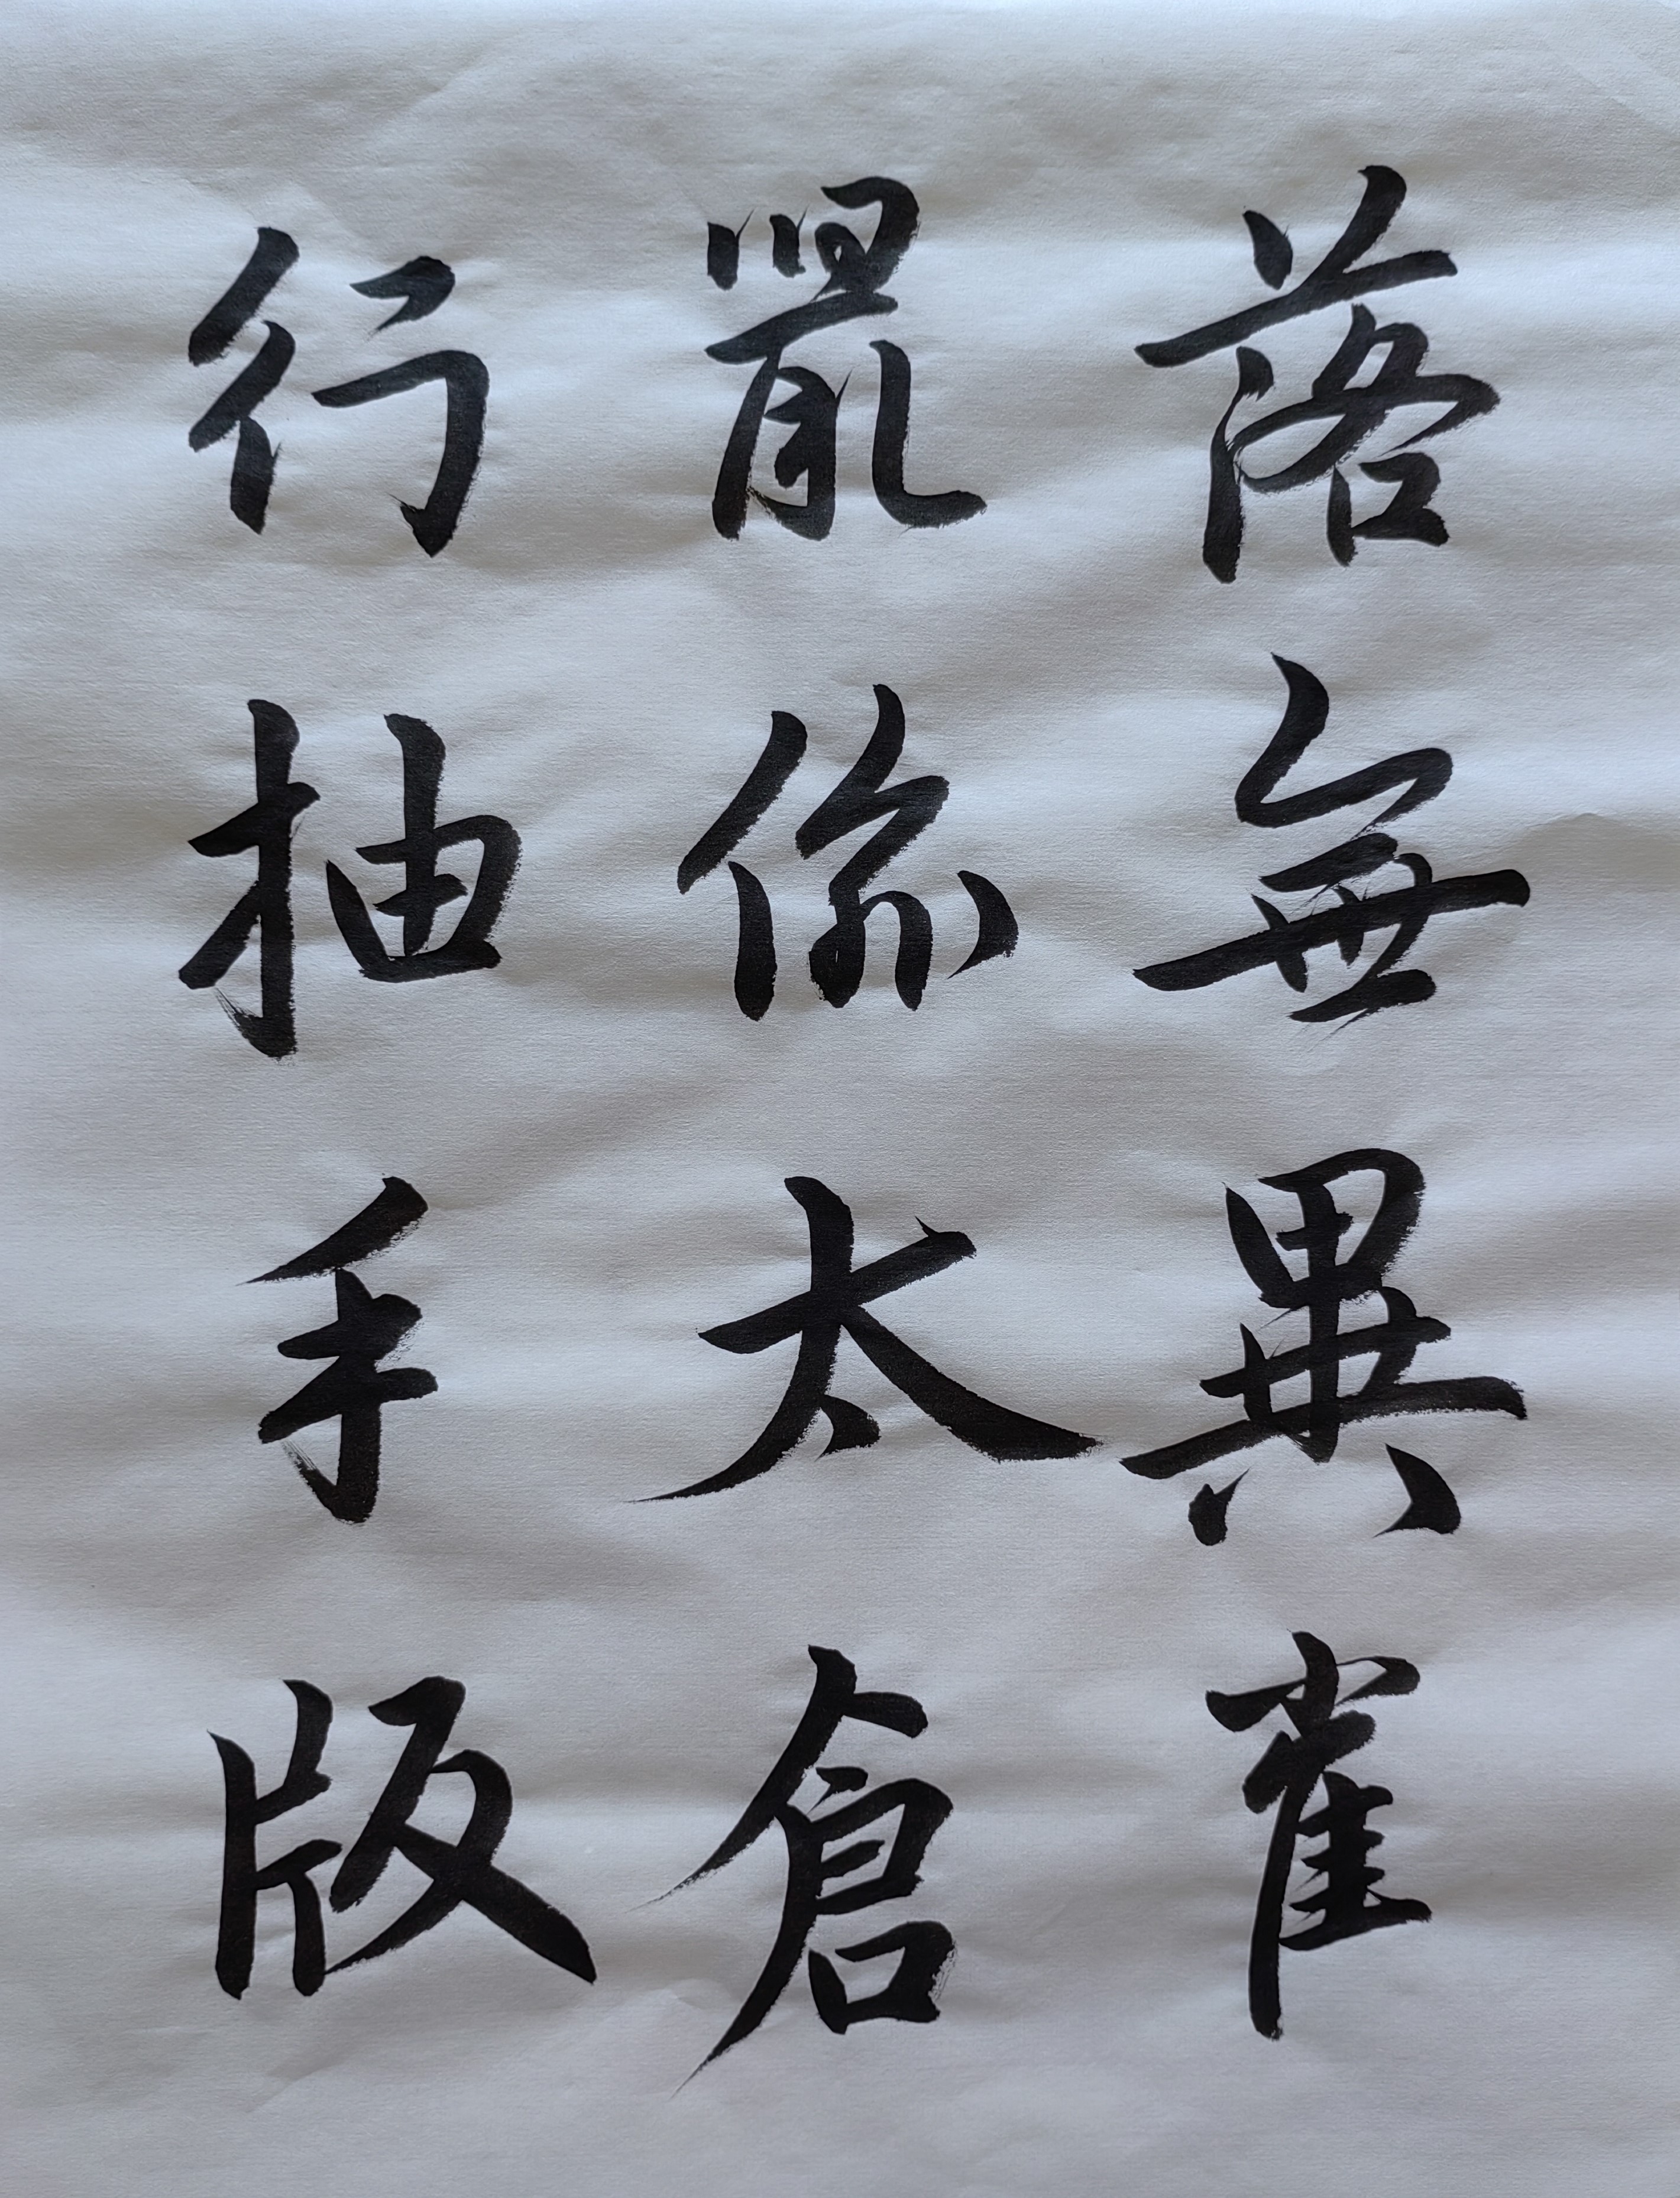 落無異雀
鼠係太倉
行抽手版